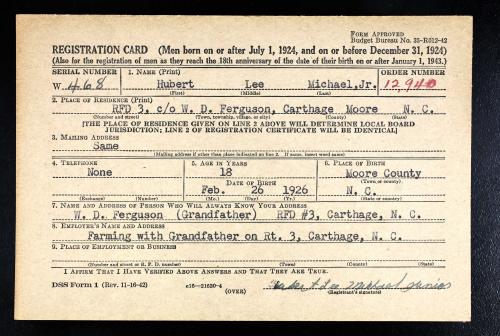 FORM APPROVED
Budget Bureau No. 33-R012-42
REGISTRATION CARD (Men born on or after July 1, 1924, and on or before December 31, 1924)
(Also for the registration of men as they reach the 18th anniversary of the date of their birth on or after January 1, 1943.)
SERIAL NUMBER 1. NAME (Print) ORDER NUMBER
W 468 Hubert Lee Michael,Jr. 12,940
(First) (Middle) (Last)
2. PLACE OF RESIDENCE (Print)
RFD 3, c/o W. D. Ferguson, Carthage Moore N. C.
(Number and street) (Town, township, village, or city) (County) (State)
[THE PLACE OF RESIDENCE GIVEN ON LINE 2 ABOVE WILL DETERMINE LOCAL BOARD
JURISDICTION; LINE 2 OF REGISTRATION CERTIFICATE WILL BE IDENTICAL]
3. MAILING ADDRESS
Same
(Mailing address if other than place indicated on line 2. If same, insert word same)
4. TELEPHONE 5. AGE IN YEARS 6. PLACE OF BIRTH
None 18 Moore County
DATE OF BIRTH (Town or county)
Feb. 26 1926 N. C.
(Exchange) (Number) (Mo.) (Day) (Yr.) (State or country)
7. NAME AND ADDRESS OF PERSON WHO WILL ALWAYS KNOW YOUR ADDRESS
W. D. Ferguson (Grandfather) RFD #3, Carthage, N. C.
8. EMPLOYER'S NAME AND ADDRESS
Farming with Grandfather on Rt. 3, Carthage, N. C.
9. PLACE OF EMPLOYMENT OR BUSINESS
(Number and street or R. F. D. number) (Town) (County) (State)
I AFFIRM THAT I HAVE VERIFIED ABOVE ANSWERS AND THAT THEY ARE TRUE.
DSS Form 1 (Rev. 11-16-42) c16-21630-4 Hubert Lee Michael junior
(OVER) (Registrant's signature)